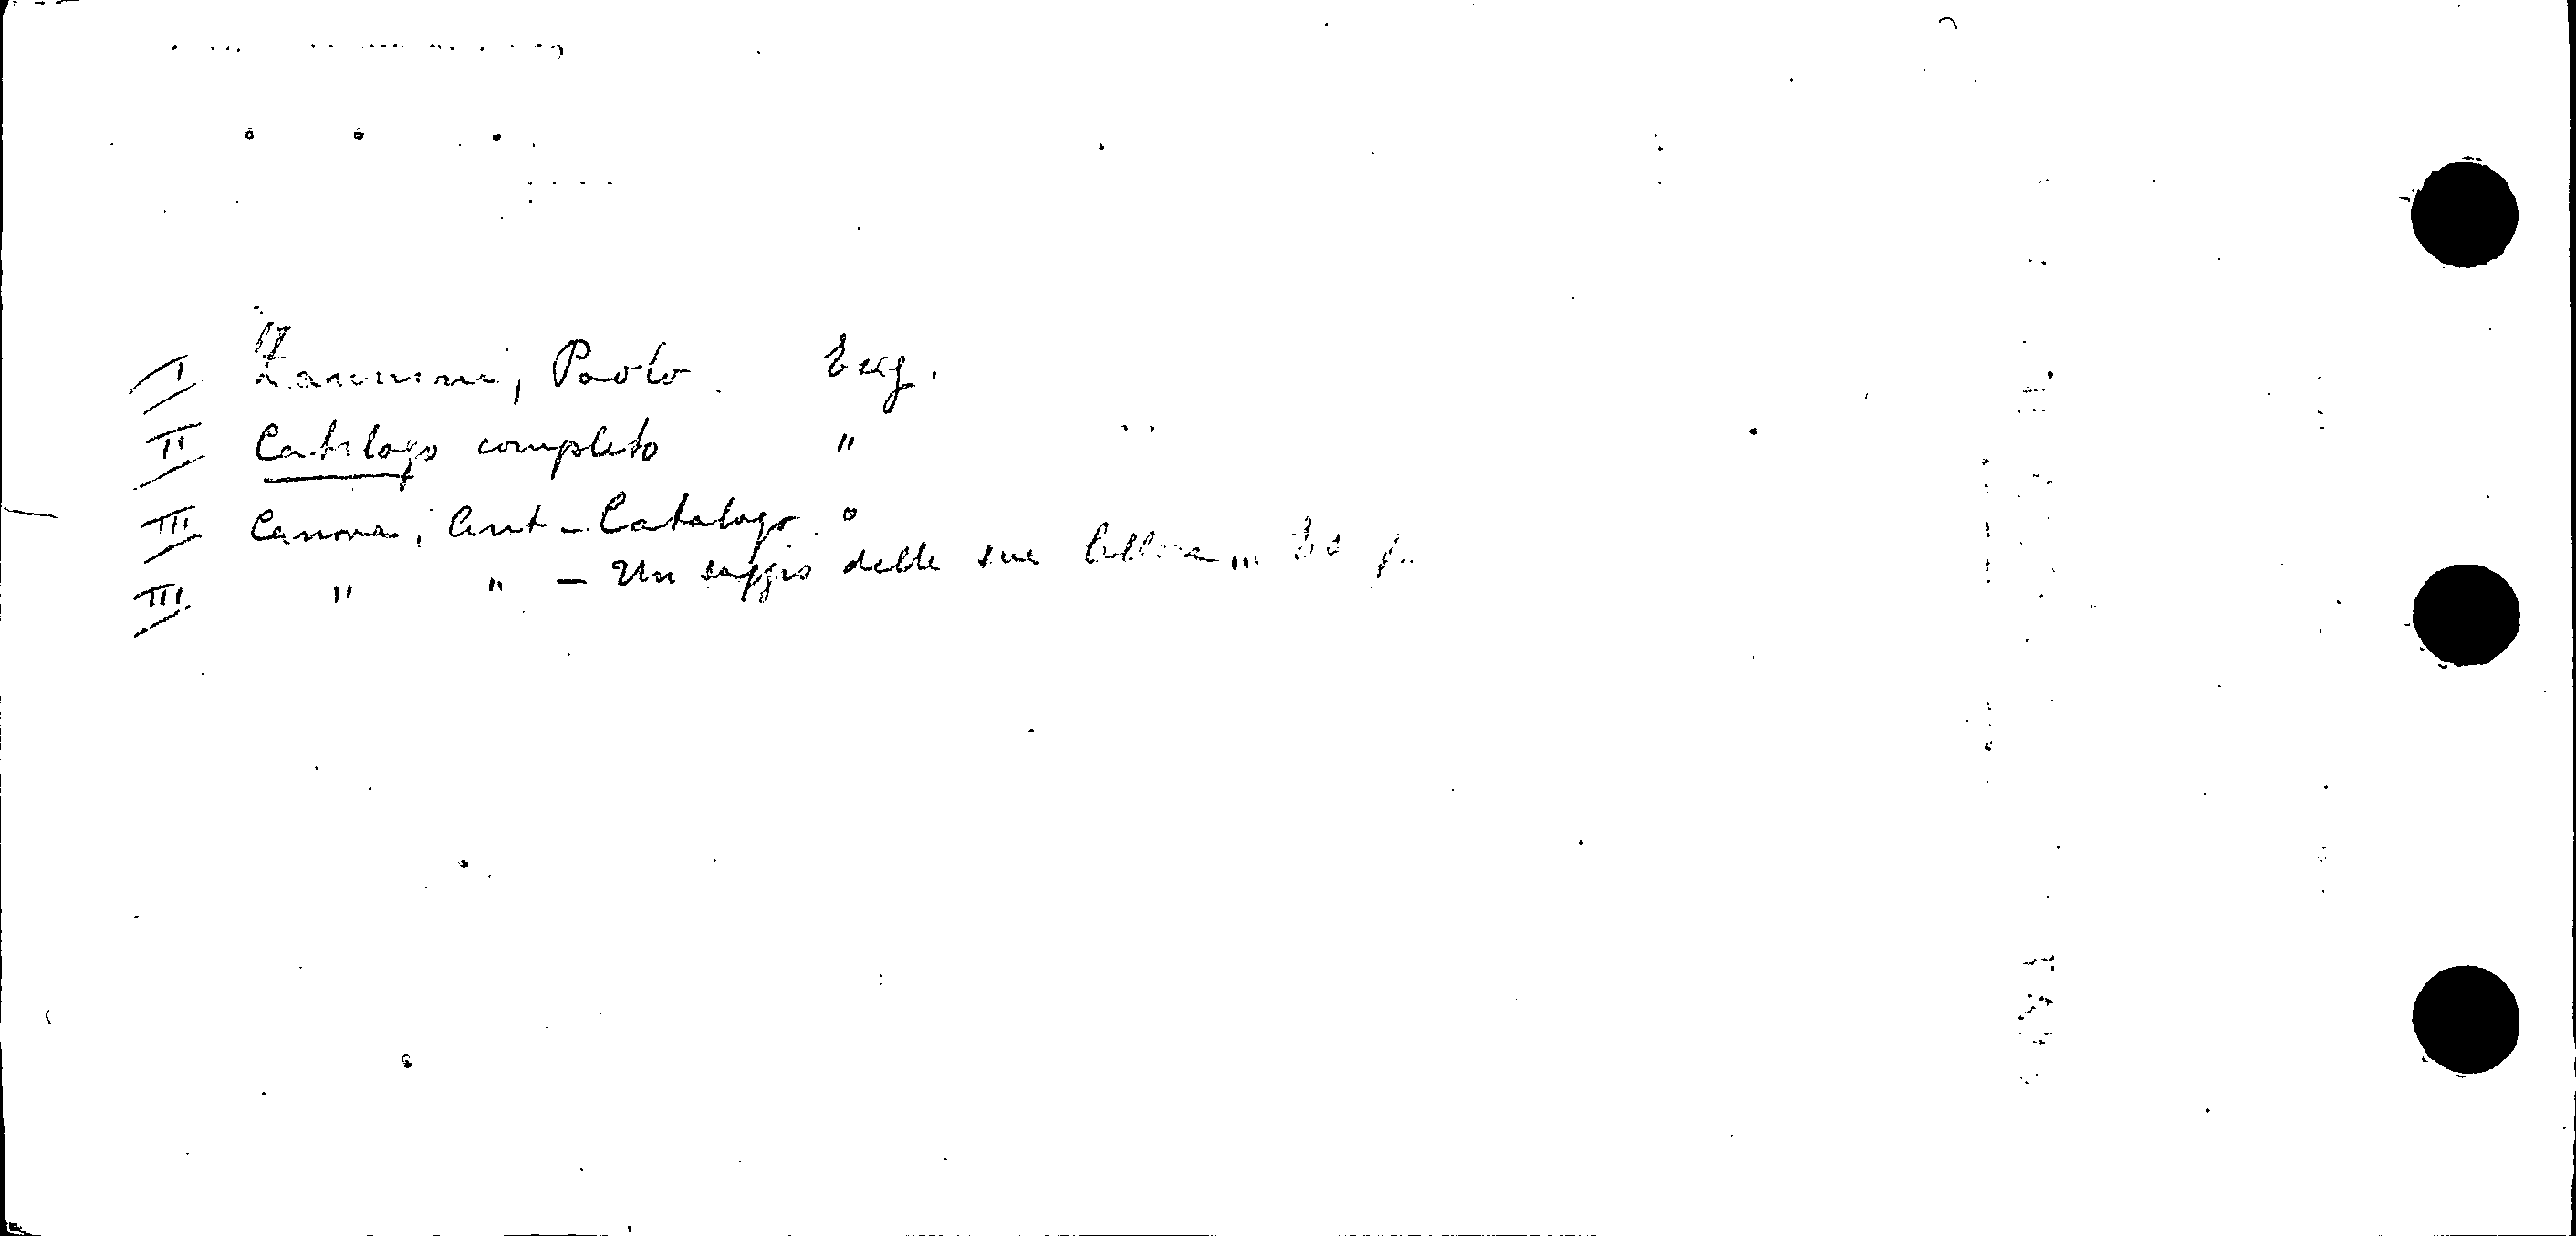 I Zannini, Paolo
II Catalogo completo "
III Canova, Ant - Catalogo
III " " - Un saggio delle sue lettere ...